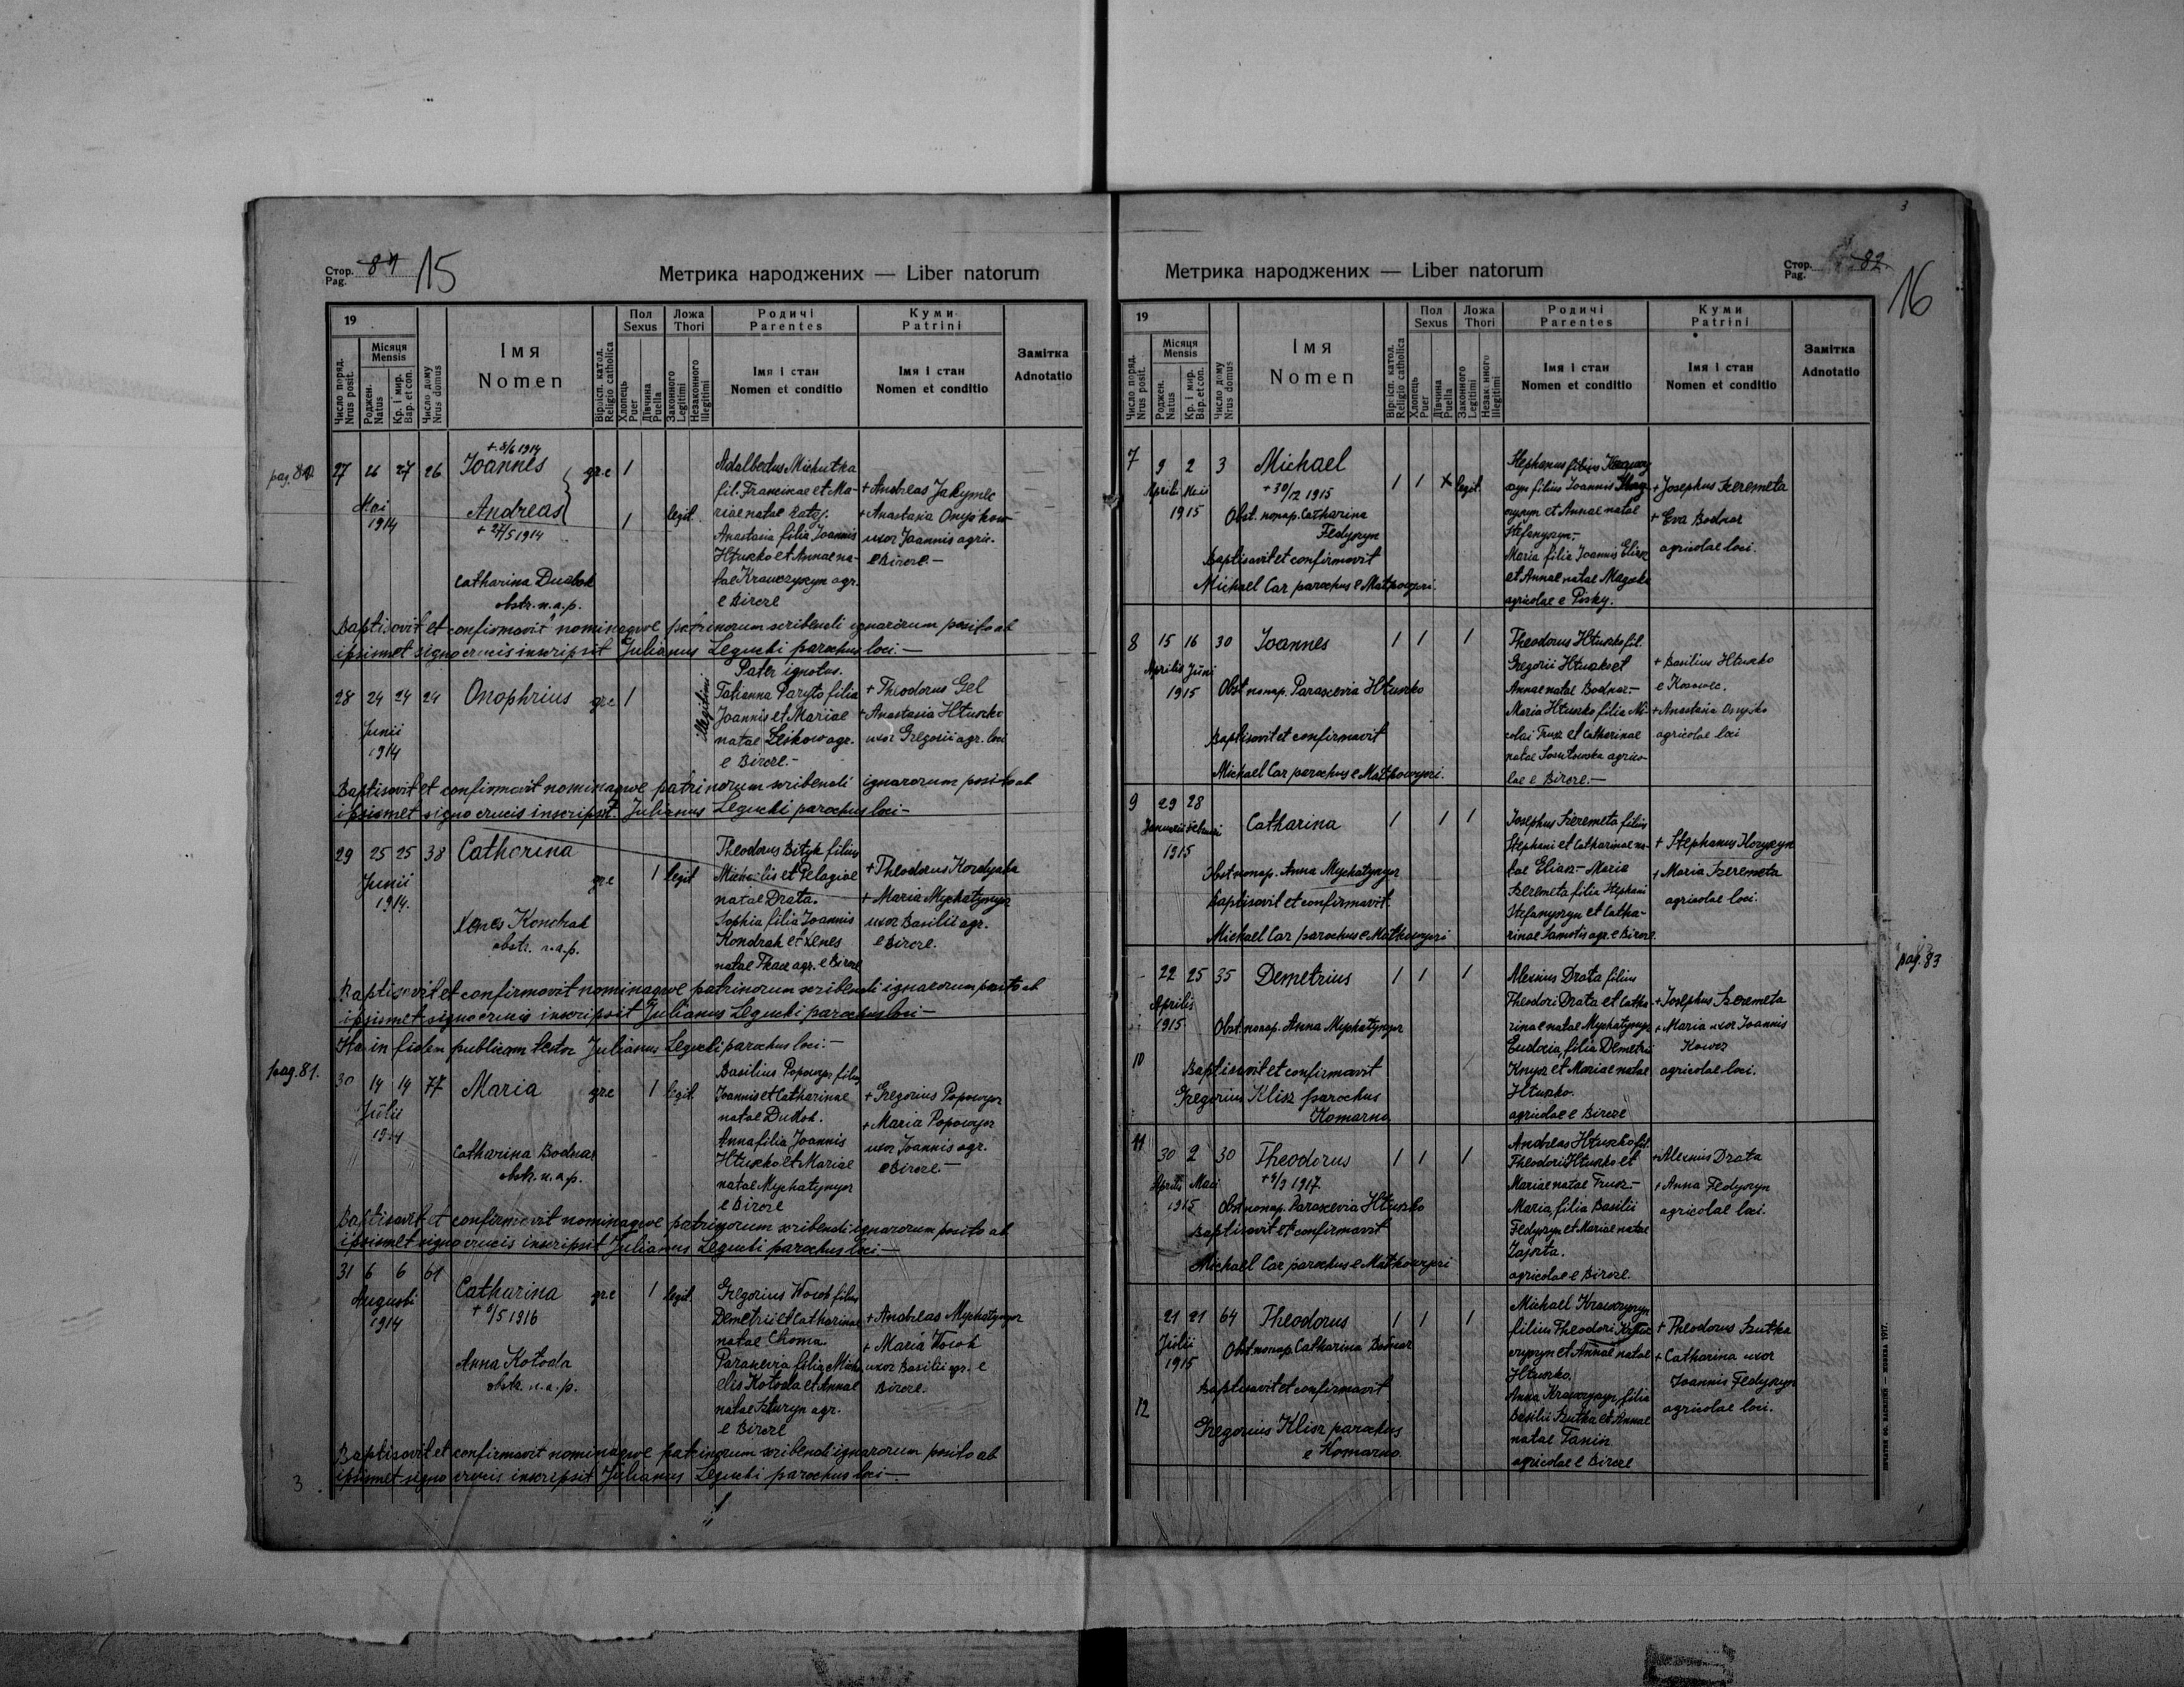 Стор. Pag. 81 15
Метрика народжених — Liber natorum
19
Число поряд. Nrus posit.
Місяця Mensis
Роджен. Natus
Кр. і мир. Bap. et con.
Число дому Nrus domus
Імя Nomen
Віроісп. катол. Religio catholica
Пол Sexus
Хлопець Puer
Дівчина Puella
Ложа Thori
Законного Legitimi
Незаконного Illegitimi
Родичі Parentes
Імя і стан Nomen et conditio
Куми Patrini
Імя і стан Nomen et conditio
Замітка Adnotatio
27 26 27 26
Mai
1914
+ 8/6 1914
Joannes
Andreas
+ 27/5 1914
Catharina Dudok
obstr. n. a. p.
gr.c 1
1 legit.
Adalbertus Michutka
fil. Francisae et Ma-
riae natae
Anastasia filia Joannis
Htuszko et Annae na-
tae Krawczyszyn agr.
e Bircze
+ Andreas Jakymec
+ Anastasia Onyśkow
uxor Joannis agric.
e Bircze.—
Baptisavit et confirmavit nominaque patrinorum scribendi ignarorum posito ab
ipsismet signo crucis inscripsit Julianus Legucki parochus loci.—
28 24 24 24
Junii
1914
Onophrius
gr.c 1
illegitimi
Pater ignotus.
Tatianna Paryto filia
Joannis et Mariae
natae Leskow agr.
e Bircze.-
+ Theodorus Gel
+ Anastasia Htuszko
uxor Gregorii agr. loci
Baptisavit et confirmavit nominaque patrinorum scribendi ignarorum posito ab
ipsismet signo crucis inscripsit. Julianus Legucki parochus loci—
29 25 25 38
Junii
1914.
Catharina
Xenes Kondrak
obstr. n. a. p.
gr.c 1 legit
Theodorus Bityk filius
Michaelis et Pelagiae
natae Drata.
Sophia filia Joannis
Kondrak et Xenes
natae Tkacz agr. e Bircze
+ Theodorus Kordyaka
+ Maria Mychatyngor
uxor Basilii agr.
e Bircze.
Baptisavit et confirmavit nominaque patrinorum scribendi ignarorum posito ab
ipsismet signo crucis inscripsit Julianus Legucki parochus loci—
Ita in fidem publicam testor Julianus Legucki parochus loci.—
pag. 81.
30 14 14 77
Julii
1914
Maria
Catharina Bodnar
obstr. n. a. p.
gr.c 1 legit.
Basilius Popowycz filius
Joannis et Catharinae
natae Dudok.
Anna filia Joannis
Htuszko et Mariae
natae Mychatyngor
e Bircze
+ Gregorius Popowycz
+ Maria Popowycz
uxor Joannis agr.
e Bircze.—
Baptisavit et confirmavit nominaque patrinorum scribendi ignarorum posito ab
ipsismet signo crucis inscripsit Julianus Legucki parochus loci—
31 6 6 61
Augusti
1914
Catharina
Anna Kotoda
obstr. n. a. p.
gr.c 1 legit.
Gregorius Wowk filius
Demetrii et Catharinae
natae Choma.
Parascevia filia Micha-
elis Kotoda et Annae
natae Szturyn agr.
e Bircze
+ Andreas Mychatyngor
+ Maria Wowk
uxor Basilii agr. e
Bircze.
Baptisavit et confirmavit nominaque patrinorum scribendi ignarorum posito ab
ipsismet signo crucis inscripsit Julianus Legucki parochus loci—
3
3
Метрика народжених — Liber natorum
Стор. Pag. 82.
16
19
Число поряд. Nrus posit.
Місяця Mensis
Роджен. Natus
Кр. і мир. Bap. et con.
Число дому Nrus domus
Імя Nomen
Віроісп. катол. Religio catholica
Пол Sexus
Хлопець Puer
Дівчина Puella
Ложа Thori
Законного Legitimi
Незаконного Illegitimi
Родичі Parentes
Імя і стан Nomen et conditio
Куми Patrini
Імя і стан Nomen et conditio
Замітка Adnotatio
7 9 2 3
Aprilis Maii
1915
Michael
+ 30/12 1915
Obst. nonap. Catharina
Fedyszyn
Baptisavit et confirmavit
Michael Car parochus e
1 1 x legit.
Stephanus filius
filius Joannis
et Annae natae
Stefanyszyn.-
Maria filia Joannis Eliasz
et Annae natae
agricolae e Pisky.
+ Josephus Szeremeta
+ Eva Bodnar
agricolae loci.
8 15 16 30
Aprilis Juni
1915
Joannes
Obst. nonap. Parascevia Htuszko
Baptisavit et confirmavit
Michael Car parochus e
1 1 1
Theodorus Htuszko fil.
Gregorii Htuszko et
Annae natae Bodnar.-
Maria Htuszko filia Ni-
colai Trusz et Catharinae
natae agrico-
lae e Bircze.—
+ Basilius Htuszko
e Kosowec.
+ Anastasia Onyśko
agricolae loci
9 29 28
Januarii Februarii
1915
Catharina
Obst. nonap. Anna Mychatyngor
Baptisavit et confirmavit.
Michael Car parochus e
1 1 1
Josephus Szeremeta filius
Stephani et Catharinae na-
tae Eliasz.- Maria
Szeremeta filia Stephani
Stefanyszyn et Catha-
rinae Samotis agr. e Bircze.
+ Stephanus
+ Maria Szeremeta
agricolae loci.
pag. 83
22 25 35
Aprilis
1915
10
Demetrius
Obst. nonap. Anna Mychatyngor
Baptisavit et confirmavit
Gregorius Klisz parochus
Komarno
1 1 1
Alexius Drata filius
Theodori Drata et Catha-
rinae natae Mychatyngor
Eudocia, filia Demetrii
Knysz et Mariae natae
Htuszko.
agricolae e Bircze
+ Josephus Szeremeta
+ Maria uxor Joannis
Kowcz
agricolae loci.
11 30 2 30
Aprilis Maii
1915
Theodorus
+ 9/9 1917
Obst. nonap. Parascevia Htuszko
Baptisavit et confirmavit
Michael Car parochus e
1 1 1
Andreas Htuszko fil.
Theodori Htuszko et
Mariae natae Trusz.-
Maria, filia Basilii
Fedyszyn et Mariae natae
Zajorta.
agricolae e Bircze.
+ Alexius Drata
+ Anna Fedyszyn
agricolae loci.
21 21 64
Julii
1915
12
Theodorus
Obst. nonap. Catharina Bodnar
Baptisavit et confirmavit
Gregorius Klisz parochus
e Komarno.
1 1 1
Michael Krawczyszyn
filius Theodori
et Annae natae
Htuszko.
Anna Krawczyszyn, filia
Basilii Szutka et Annae
natae Tanin
agricolae e Bircze
+ Theodorus Szutka
+ Catharina uxor
Joannis Fedyszyn
agricolae loci.